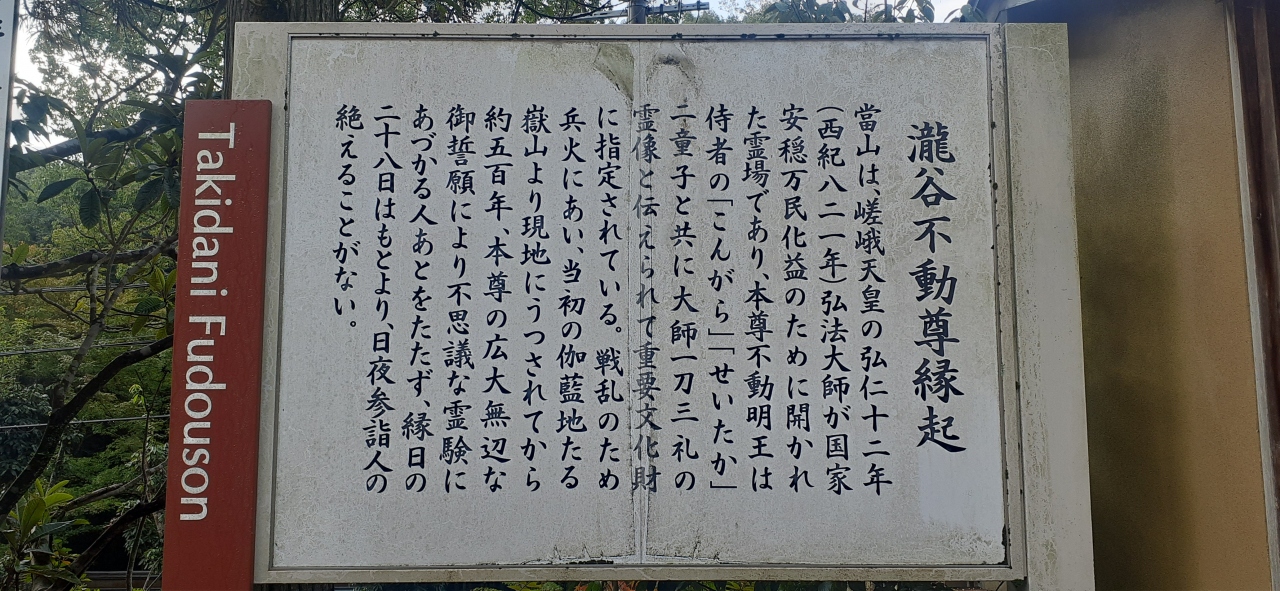 瀧谷不動尊縁起
當山は、嵯峨天皇の弘仁十二年
(西紀八二一年)弘法大師が国家
安穏万民化益のために開かれ
た霊場であり、本尊不動明王は
侍者の「こんがら」「せいたか」
二童子と共に大師一刀三礼の
霊像と伝えられて重要文化財
に指定されている。戦乱のため
兵火にあい、当初の伽藍地たる
嶽山より現地にうつされてから
約五百年、本尊の広大無辺な
御誓願により不思議な霊験に
あづかる人あとをたたず、縁日の
二十八日はもとより、日夜参詣人の
絶えることがない。
Takidani Fudouson